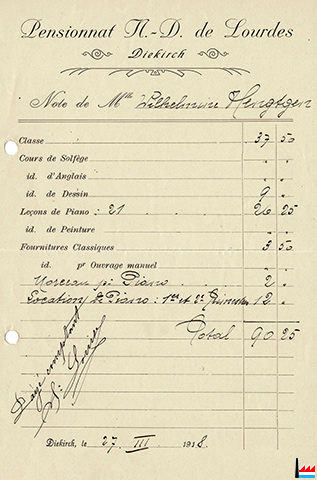 Pensionnat N.-D. de Lourdes
Diekirch
Note de Mlle Wilhelmine Hengtgen
Classe 37 50
Cours de Solfège " "
id. d'Anglais " "
id. de Dessin 9 "
Leçons de Piano : 21 26 25
id. de Peinture " "
Fournitures Classiques 3 50
id. pr Ouvrage manuel " "
Morceau pr Piano 2 "
Location de Piano : 1er et 2e Trimestre 12 "
Total 90 25
Payé comptant
Diekirch, le 27 III 1918.